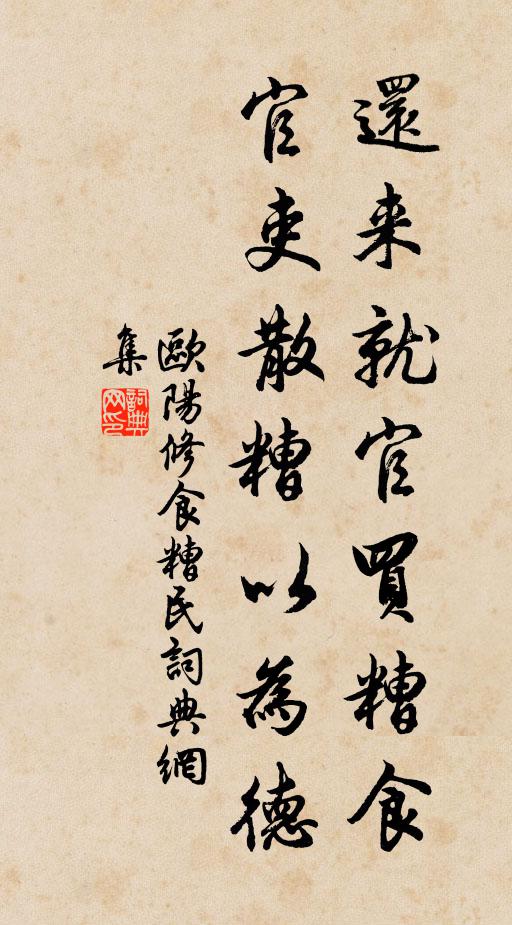 還来就官買糟食
官吏散糟以為德
歐陽修食糟民詞典網
集
詞典
网印